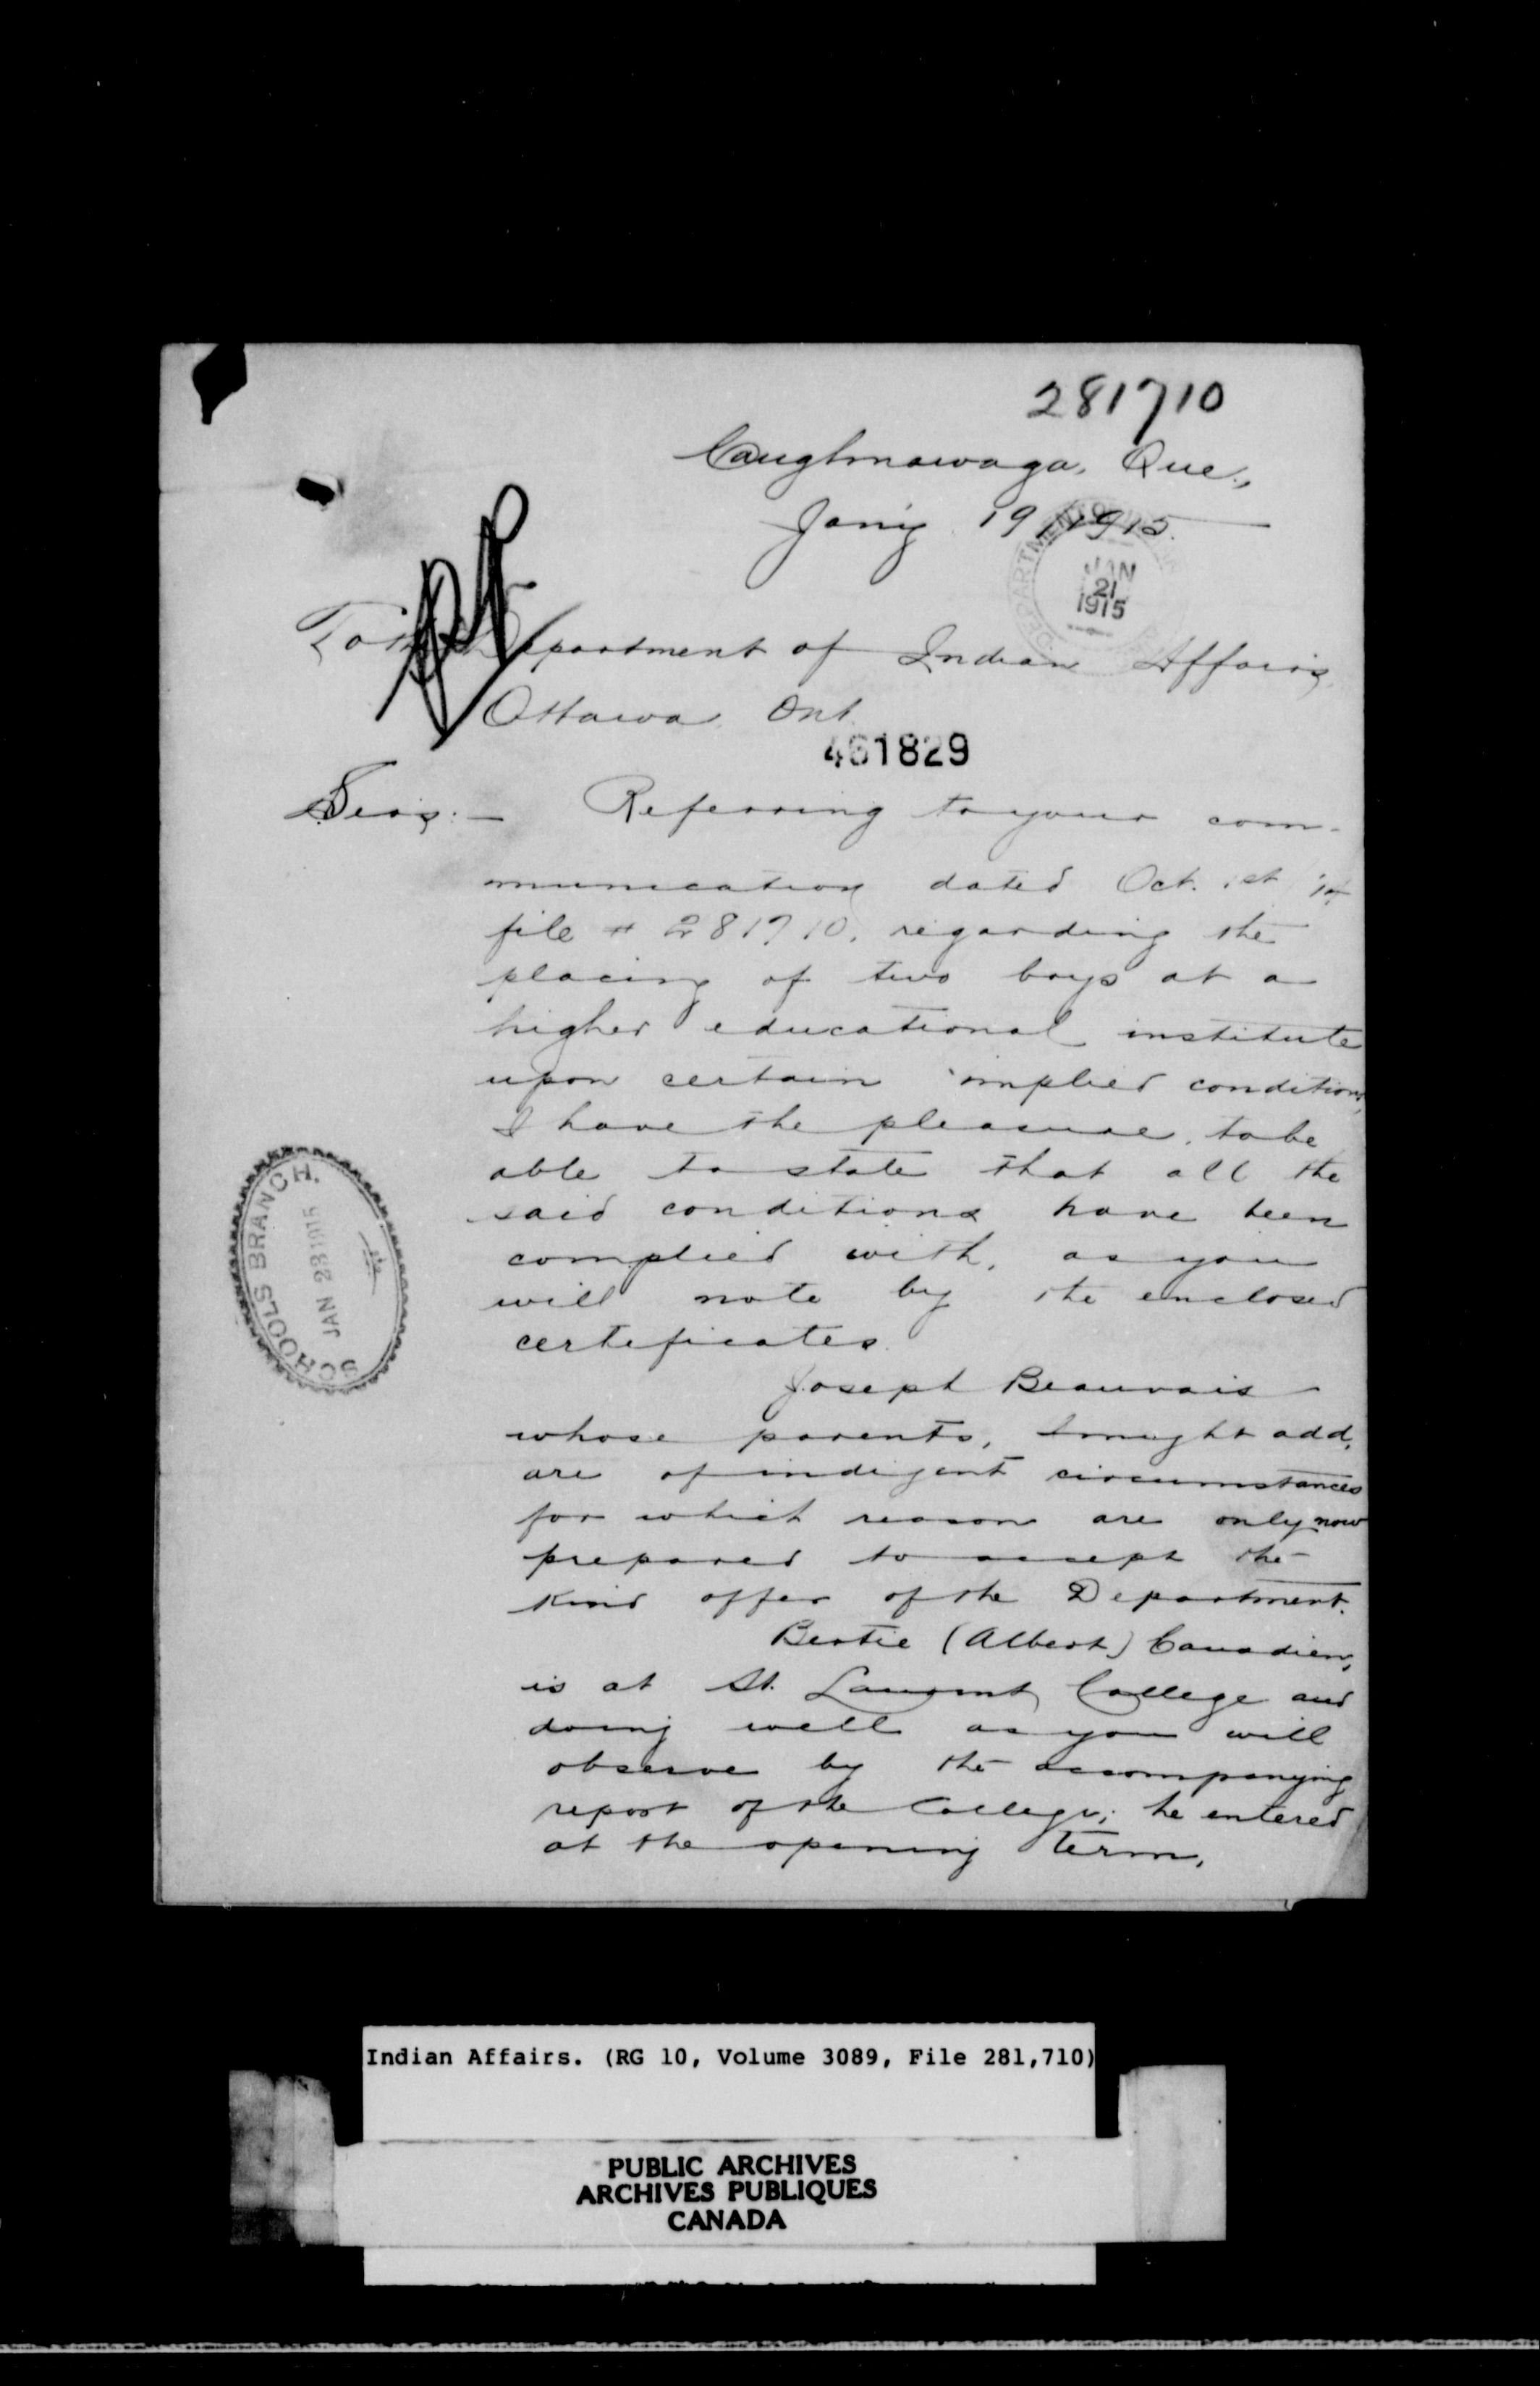 281710
Caughnawaga, Que.,
Jan'y 19, 1915.
DEPARTMENT OF
JAN
21
1915
To the Department of Indian Affairs,
Ottawa Ont.
461829
Sirs:— Referring to your com-
munication dated Oct. 1st '14
file # 281710, regarding the
placing of two boys at a
higher educational institute
upon certain implied conditions,
I have the pleasure, to be
able to state that all the
said conditions have been
complied with, as you
will note by the enclosed
certificates.
SCHOOLS BRANCH.
JAN 23 1915
Joseph Beauvais
whose parents, I might add,
are of indigent circumstances
for which reason are only now
prepared to accept the
kind offer of the Department.
Bertie (Albert) Canadien,
is at St. Laurent College and
doing well as you will
observe by the accompanying
report of the College; he entered
at the opening term,
Indian Affairs. (RG 10, Volume 3089, File 281,710)
PUBLIC ARCHIVES
ARCHIVES PUBLIQUES
CANADA